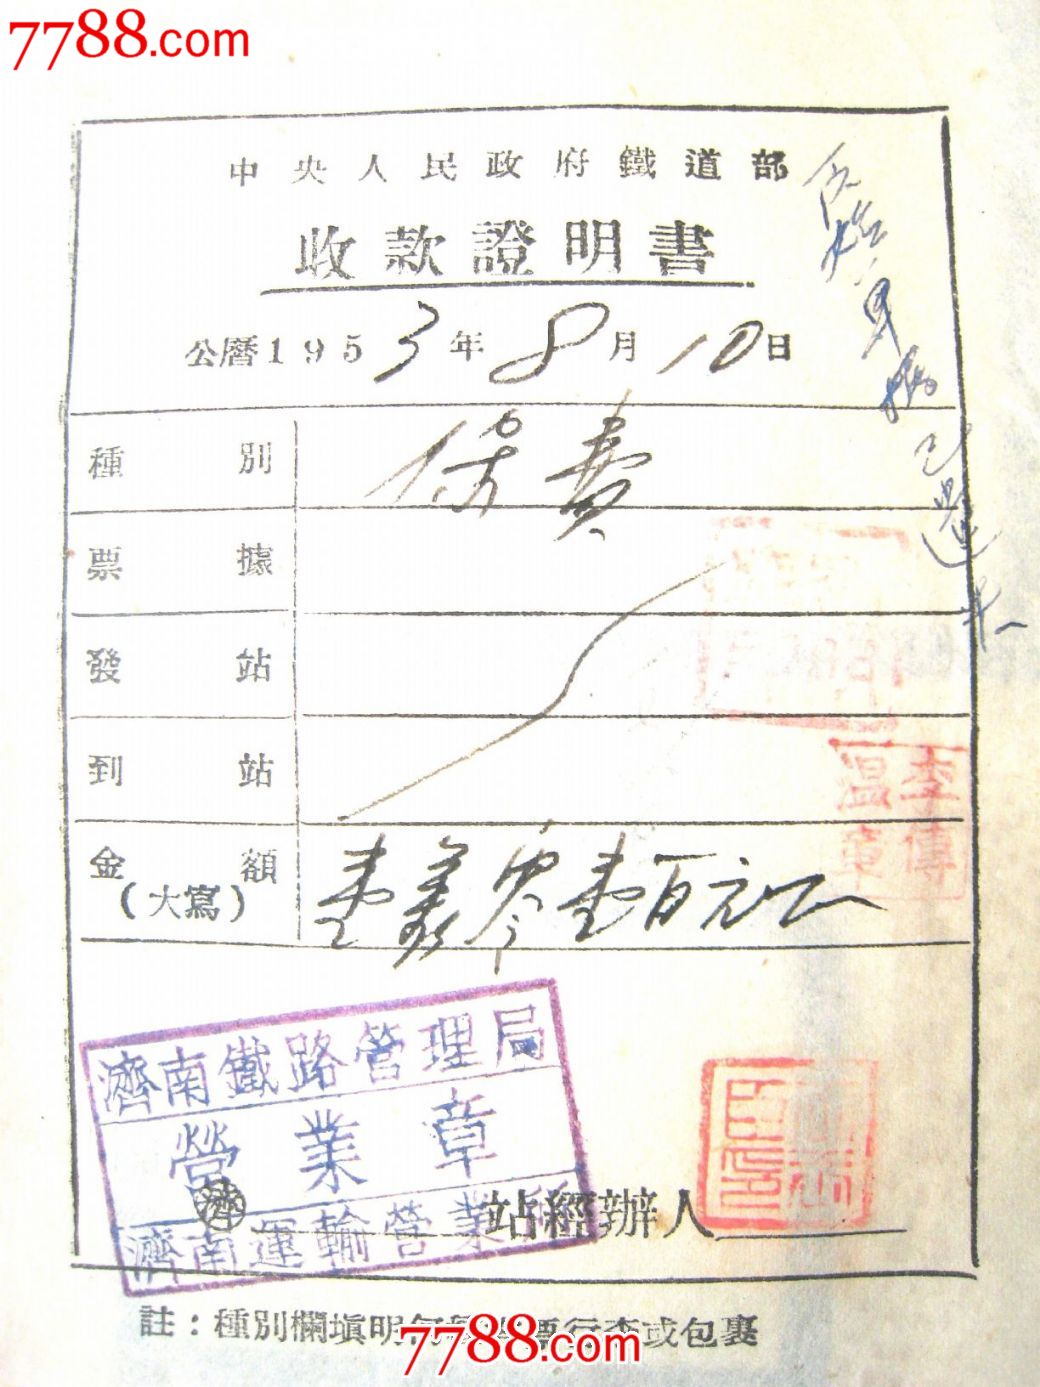 7788.com
中央人民政府鐵道部
收款證明書
公曆1953年8月10日
種別 保費
票據
發站
到站
金額 壹萬零壹百元正
(大寫)
李傳
温章
濟南鐵路管理局
營業章
濟南運輸營業
濟
站經辦人
註：種別欄填明 票行李或包裹
7788.com